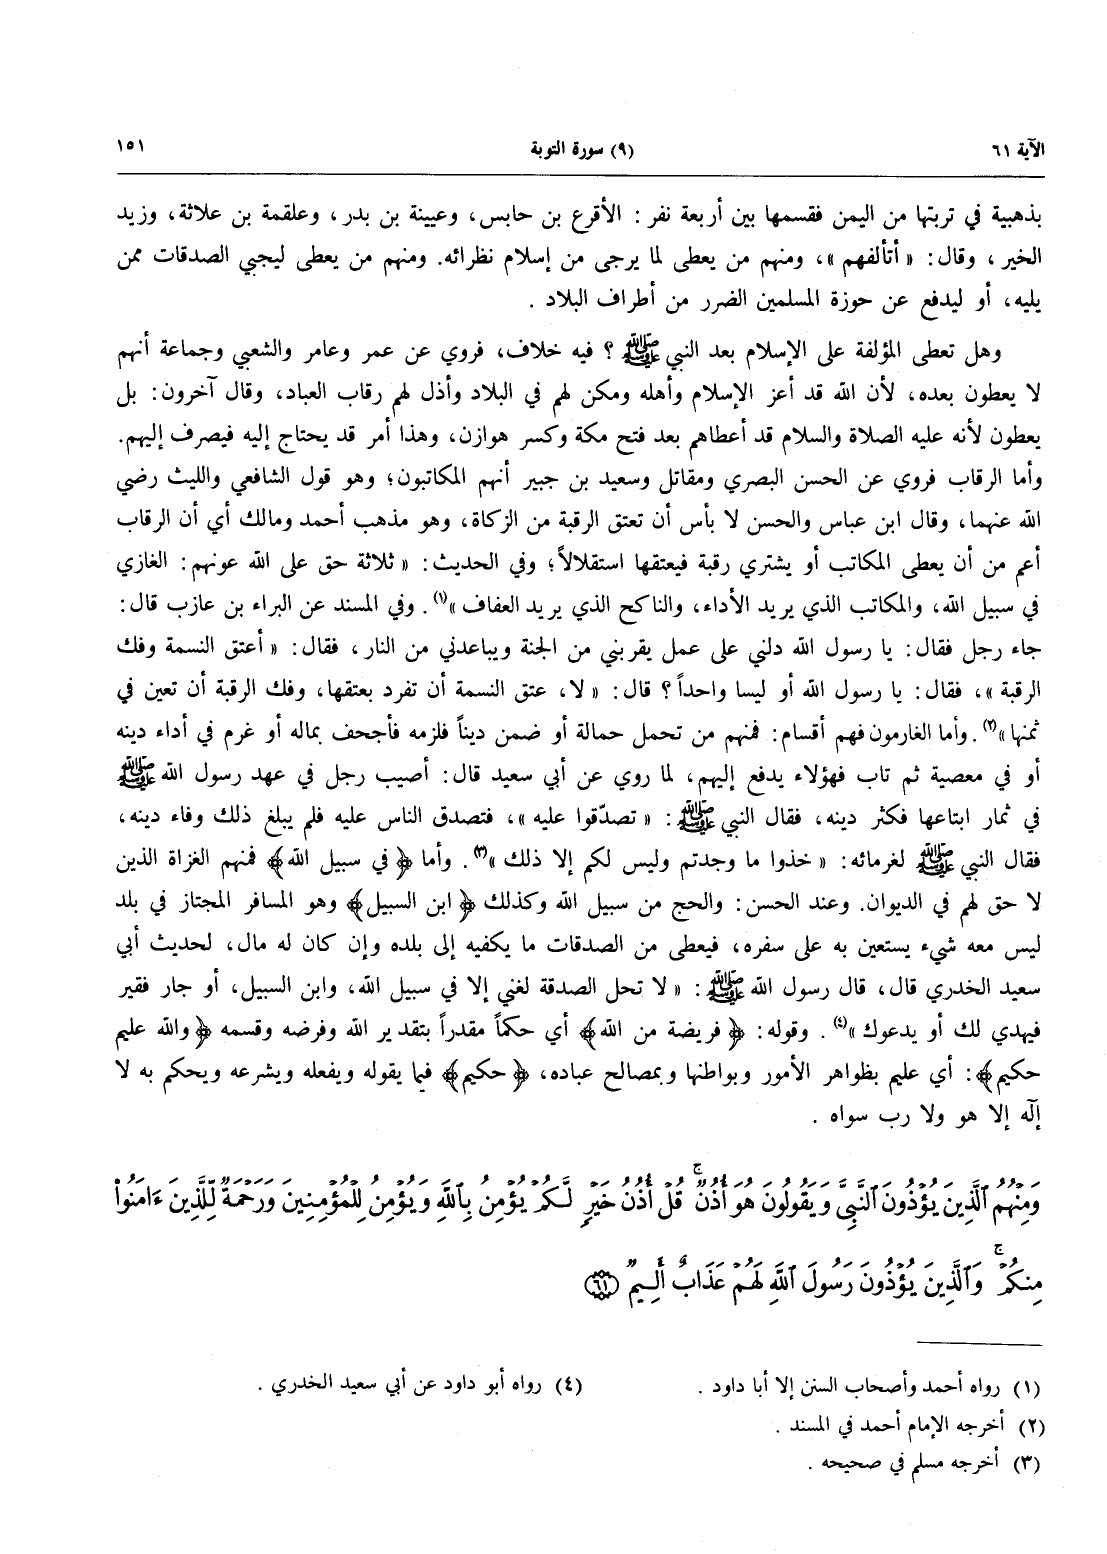 الآية ٦١ (٩) سورة التوبة ١٥١
بذهبية في تربتها من اليمن فقسمها بين أربعة نفر : الأقرع بن حابس، وعيينة بن بدر ، وعلقمة بن علاثة، وزيد
الخير ، وقال : « أتألفهم »، ومنهم من يعطى لما يرجى من إسلام نظرائه. ومنهم من يعطى ليجبي الصدقات ممن
يليه، أو ليدفع عن حوزة المسلمين الضرر من أطراف البلاد .
وهل تعطى المؤلفة على الإسلام بعد النبي ﷺ ؟ فيه خلاف، فروي عن عمر وعامر والشعبي وجماعة أنهم
لا يعطون بعده، لأن الله قد أعز الإسلام وأهله ومكن لهم في البلاد وأذل لهم رقاب العباد، وقال آخرون : بل
يعطون لأنه عليه الصلاة والسلام قد أعطاهم بعد فتح مكة وكسر هوازن، وهذا أمر قد يحتاج إليه فيصرف إليهم.
وأما الرقاب فروي عن الحسن البصري ومقاتل وسعيد بن جبير أنهم المكاتبون؛ وهو قول الشافعي والليث رضي
الله عنهما، وقال ابن عباس والحسن لا بأس أن تعتق الرقبة من الزكاة، وهو مذهب أحمد ومالك أي أن الرقاب
أعم من أن يعطى المكاتب أو يشتري رقبة فيعتقها استقلالاً؛ وفي الحديث : « ثلاثة حق على الله عونهم : الغازي
في سبيل الله، والمكاتب الذي يريد الأداء، والناكح الذي يريد العفاف »(١). وفي المسند عن البراء بن عازب قال :
جاء رجل فقال : يا رسول الله دلني على عمل يقربني من الجنة ويباعدني من النار ، فقال : « أعتق النسمة وفك
الرقبة »، فقال : يا رسول الله أو ليسا واحداً ؟ قال : « لا، عتق النسمة أن تفرد بعتقها، وفك الرقبة أن تعين في
ثمنها »(٢). وأما الغارمون فهم أقسام : فمنهم من تحمل حمالة أو ضمن ديناً فلزمه فأجحف بماله أو غرم في أداء دينه
أو في معصية ثم تاب فهؤلاء يدفع إليهم، لما روي عن أبي سعيد قال : أصيب رجل في عهد رسول الله ﷺ
في ثمار ابتاعها فكثر دينه، فقال النبي ﷺ : « تصدّقوا عليه »، فتصدق الناس عليه فلم يبلغ ذلك وفاء دينه،
فقال النبي ﷺ لغرمائه : « خذوا ما وجدتم وليس لكم إلا ذلك »(٣). وأما ﴿ في سبيل الله ﴾ فمنهم الغزاة الذين
لا حق لهم في الديوان. وعند الحسن : والحج من سبيل الله وكذلك ﴿ ابن السبيل ﴾ وهو المسافر المجتاز في بلد
ليس معه شيء يستعين به على سفره، فيعطى من الصدقات ما يكفيه إلى بلده وإن كان له مال، لحديث أبي
سعيد الخدري قال، قال رسول الله ﷺ : « لا تحل الصدقة لغني إلا في سبيل الله، وابن السبيل، أو جار فقير
فيهدي لك أو يدعوك »(٤). وقوله : ﴿ فريضة من الله ﴾ أي حكماً مقدراً بتقدير الله وفرضه وقسمه ﴿ والله عليم
حكيم ﴾ : أي عليم بظواهر الأمور وبواطنها وبمصالح عباده، ﴿ حكيم ﴾ فيما يقوله ويفعله ويشرعه ويحكم به لا
إلٓه إلا هو ولا رب سواه .
وَمِنْهُمُ ٱلَّذِينَ يُؤْذُونَ ٱلنَّبِىَّ وَيَقُولُونَ هُوَ أُذُنٌ ۚ قُلْ أُذُنُ خَيْرٍ لَّكُمْ يُؤْمِنُ بِٱللَّهِ وَيُؤْمِنُ لِلْمُؤْمِنِينَ وَرَحْمَةٌ لِّلَّذِينَ ءَامَنُوا۟
مِنكُمْ ۚ وَٱلَّذِينَ يُؤْذُونَ رَسُولَ ٱللَّهِ لَهُمْ عَذَابٌ أَلِيمٌ ﴿٦١﴾
(١) رواه أحمد وأصحاب السنن إلا أبا داود . (٤) رواه أبو داود عن أبي سعيد الخدري .
(٢) أخرجه الإمام أحمد في المسند .
(٣) أخرجه مسلم في صحيحه .